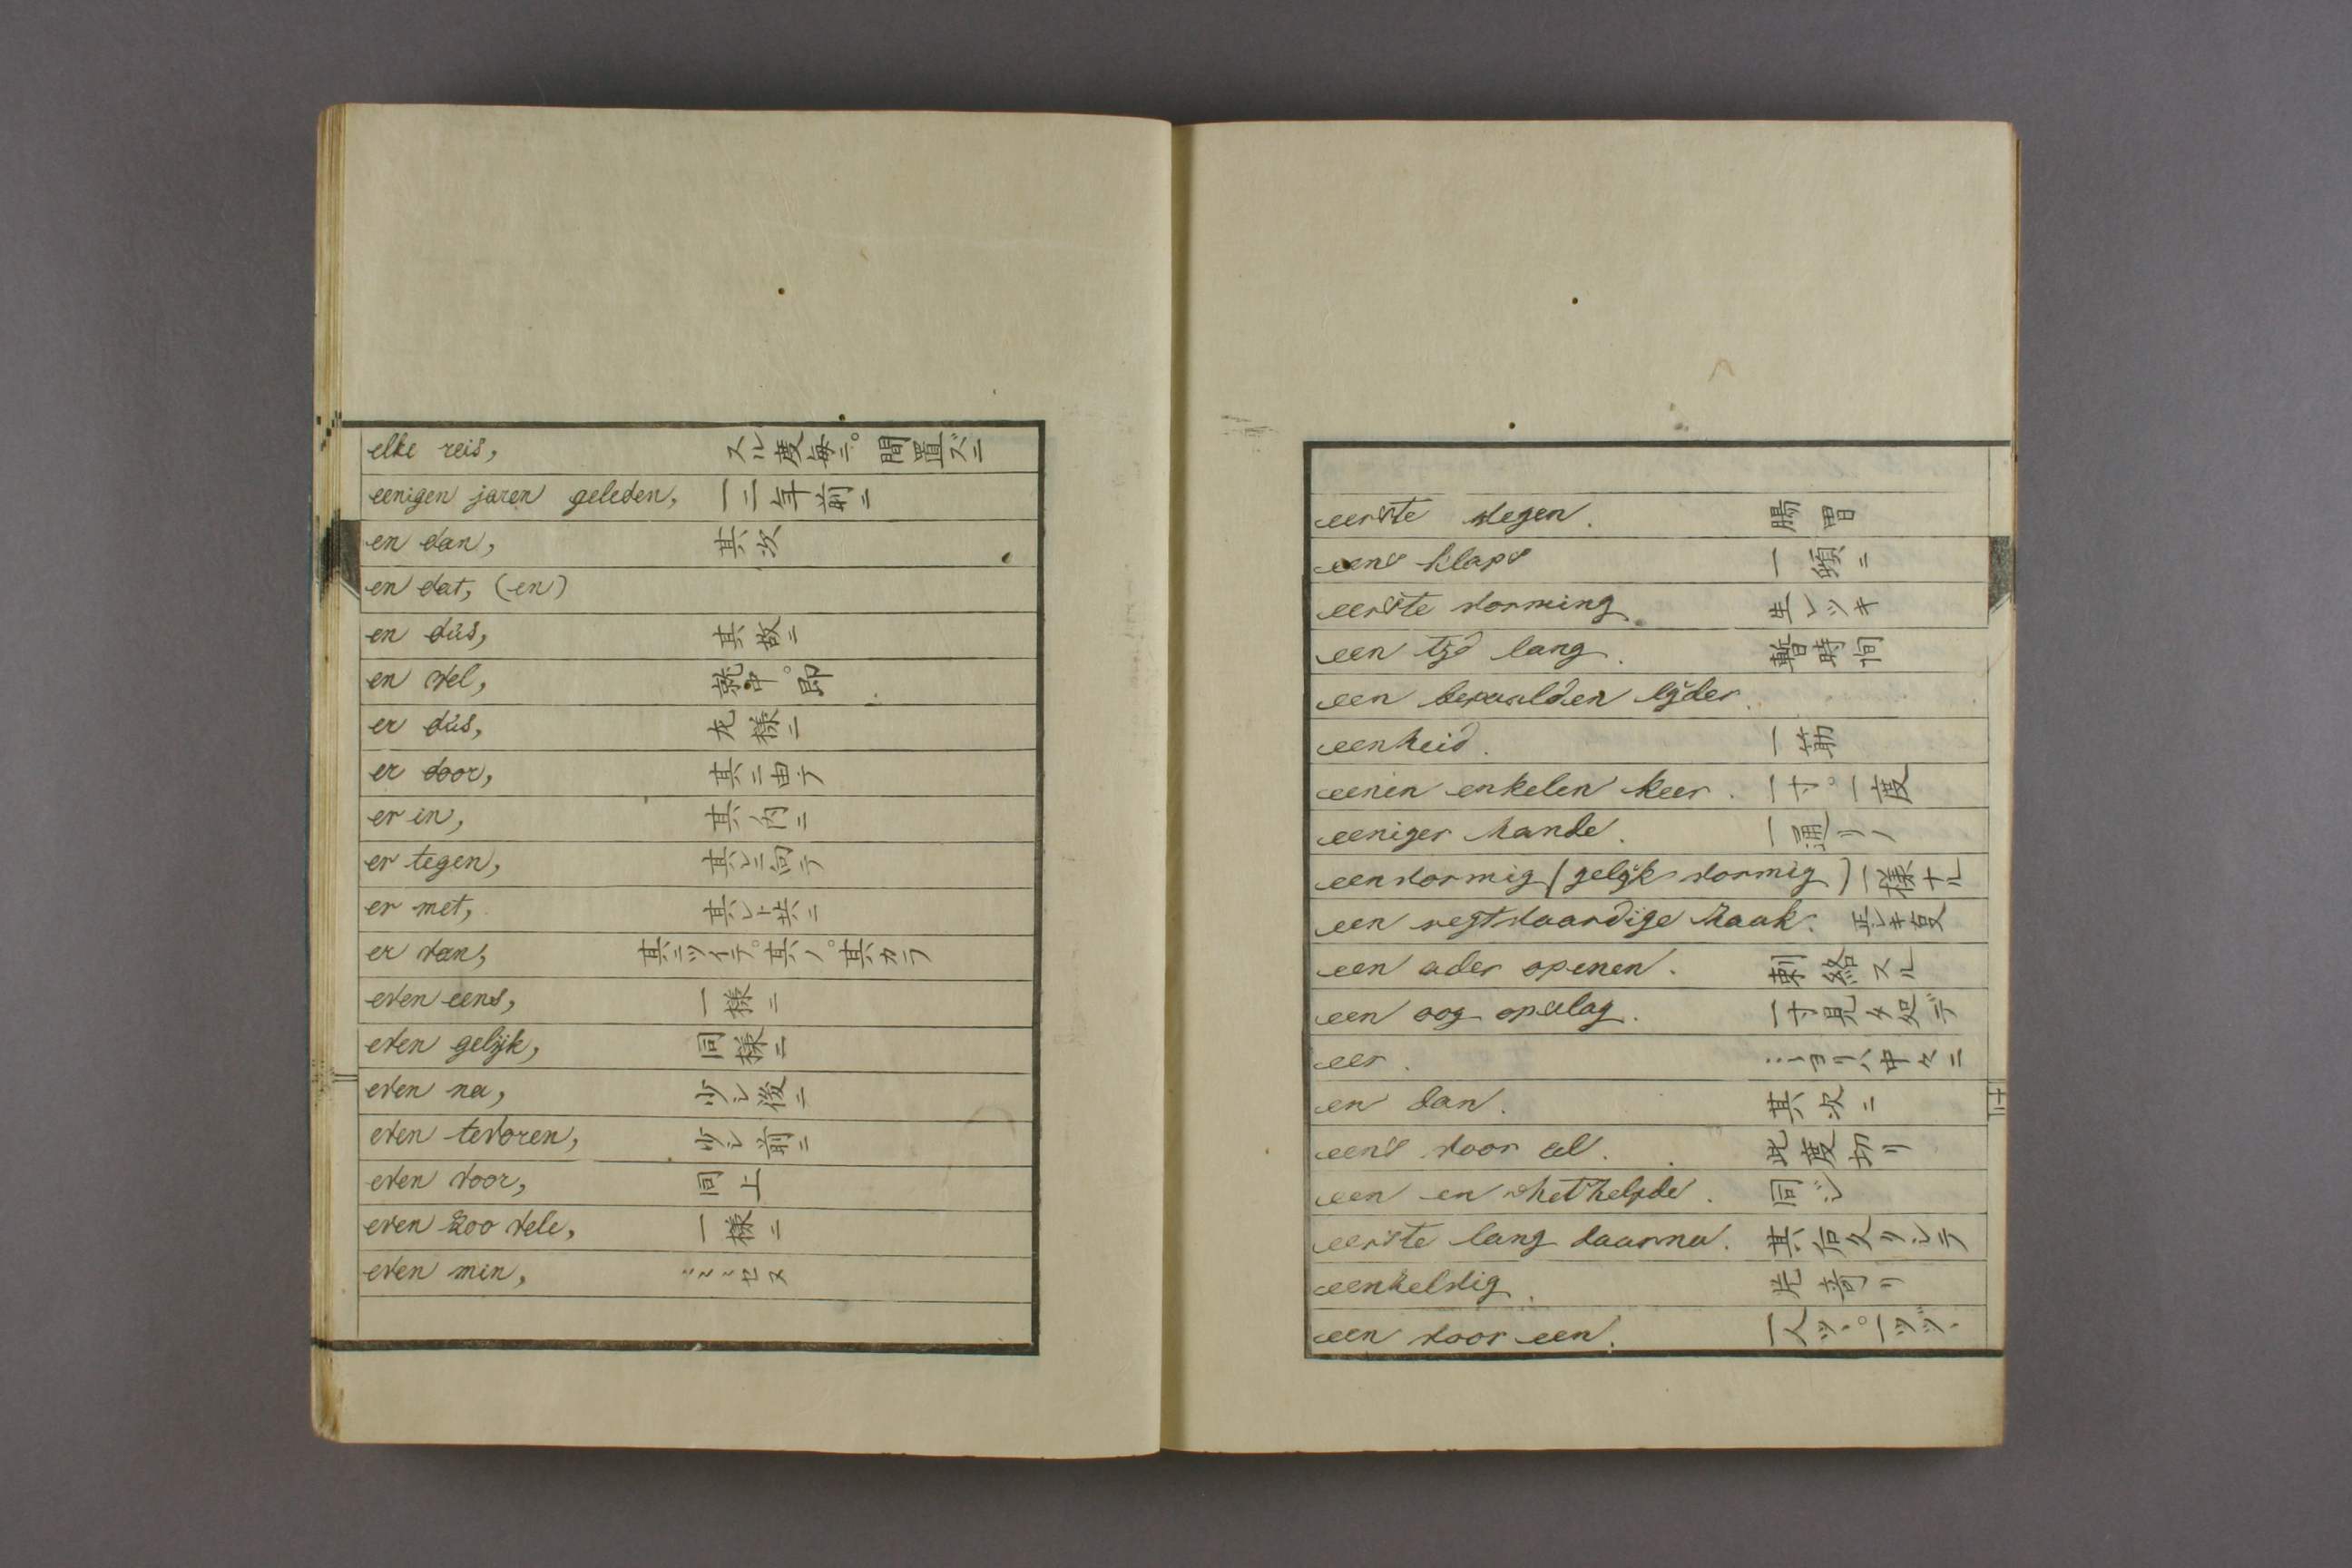 elke reis, スル度毎ニ。間置ズニ
eenigen jaren geleden, 一二年前ニ
en dan, 其次
en dat, (en)
en dús, 其故ニ
en vel, 就中。即
er dús, 左様ニ
er door, 其ニ由テ
er in, 其内ニ
er tegen, 其レニ向テ
er met, 其レト共ニ
er van, 其ニツイテ。其ノ。其カラ
even eens, 一様ニ
even gelijk, 同様ニ
even na, 少シ後ニ
even tevoren, 少シ前ニ
even voor, 同上
even zoo vele, 一様ニ
even min, セヌ
eerste wegen. 腸胃
eens klaps 一頓ニ
eerste vorming 生レツキ
een tijd lang. 暫時間
een bepaalden lijder.
eenheid. 一筋
eenen enkelen keer. 一寸。一度
eeniger hande. 一通リノ
eenvormig (gelijk vormig) 一様ナル
een regtvaardige zaak. 正シキ
een ader openen. 刺絡スル
een oog opslag. 一寸見タ処デ
eer. …ヨリハ中々ニ
en dan. 其次ニ
eens voor al. 此度切リ
een en het zelfde. 同ジ
eerste lang daarna. 其后久シテ
eenzelvig.
een voor een. 一人ヅヽ。一ツヅヽ
十二